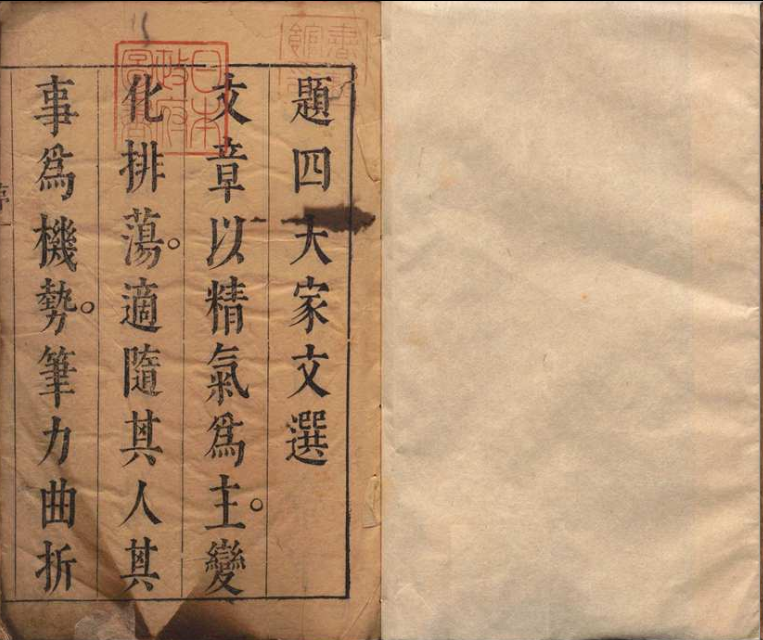 題四大家文選
文章以精氣爲主。變
化排蕩。適隨其人其
事爲機勢。筆力曲折
日本
政府
圖書